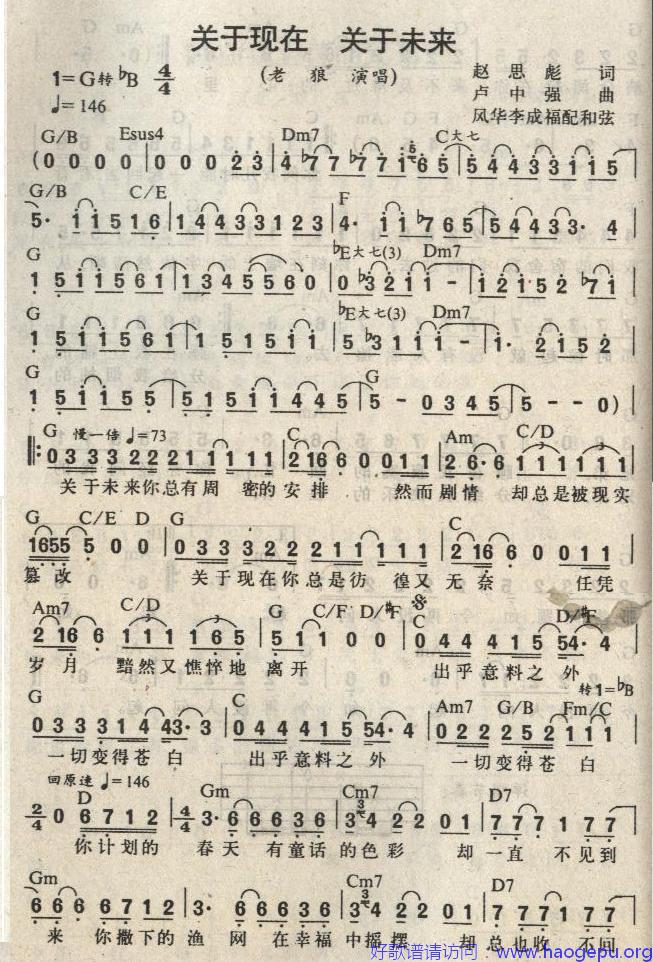 关于现在　关于未来
(老　狼　演唱)
1=G转♭B 4/4
♩=146
赵　思　彪　词
卢　中　强　曲
风华李成福配和弦
G/B Esus4 Dm7 C大七
(0 0 0 0 | 0 0 0 2 3 | 4 ♭7 7 ♭7 7 1 6 5 | 5 4 4 3 3 1 1 5
G/B C/E F
5· 1 1 5 1 6 | 1 4 4 3 3 1 2 3 | 4· 1 1 ♭7 6 5 | 5 4 4 3 3· 4
G ♭E大七(3) Dm7
1 5 1 1 5 6 1 | 1 3 4 5 5 6 0 | 0 ♭3 2 1 1 - | 1 2 1 5 2 ♭7 1
G ♭E大七(3) Dm7
1 5 1 1 5 6 1 | 1 1 5 1 5 1 1 | 5 ♭3 1 1 1 - | 1· 2 1 5 2
G G
1 5 1 1 5 5 | 5 1 5 1 1 4 4 5 | 5 - 0 3 4 5 | 5 - - 0)
G 慢一倍 ♩=73 C Am C/D
0 3 3 3 2 2 2 1 1 1 1 1 | 2 1 6 6 0 0 1 1 | 2 6· 6 1 1 1 1 1 1
关于未来你总有周　密的安排　然而剧情　却总是被现实
G C/E D G C
1 6 5 5 5 0 0 | 0 3 3 3 2 2 2 1 1 1 1 1 | 2 1 6 6 0 0 1 1
篡改　关于现在你总是彷　徨又无奈　任凭
Am7 C/D G C/F D/♯F C D/♯F
2 1 6 6 1 1 1 1 6 5 | 5 1 1 0 0 | 0 4 4 4 1 5 5 4· 4
岁月　黯然又憔悴地　离开　出乎意料之外
转1=♭B
G C Am7 G/B Fm/C
0 3 3 3 3 1 4 4 3· 3 | 0 4 4 4 1 5 5 4· 4 | 0 2 2 2 5 2 1 1 1
一切变得苍白　出乎意料之外　一切变得苍　白
回原速 ♩=146
D Gm Cm7 D7
2/4 0 6 7 1 2 | 4/4 3· 6 6 6 6 | 3 4 2 2 0 1 | 7 7 7 1 7 7
你计划的　春天　有童话　的色彩　却一直　不见到
Gm Cm7 D7
6 6 6 6 7 1 2 | 3· 6 6 6 3 6 | 3 4 2 2 0 1 | 7 7 7 1 7 7
来　你撒下的渔　网　在幸福　中摇摆　却总也收　不回
好歌谱请访问：www.haogepu.org